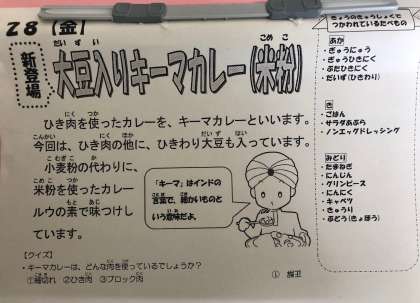 28（金）
新登場
大豆入りキーマカレー（米粉）
ひき肉を使ったカレーを、キーマカレーといいます。
今回は、ひき肉の他に、ひきわり大豆も入っています。
小麦粉の代わりに、
米粉を使ったカレー
ルウの素で味つけし
ています。
「キーマ」はインドの
言葉で、細かいものと
いう意味だよ。
【クイズ】
・キーマカレーは、どんな肉を使っているでしょうか？
①細切れ ②ひき肉 ③ブロック肉
きょうのきゅうしょくで
つかわれているたべもの
あか
・ぎゅうにゅう
・ぎゅうひきにく
・ぶたひきにく
・だいず（ひきわり）
き
・ごはん
・サラダあぶら
・ノンエッグドレッシング
みどり
・たまねぎ
・にんじん
・グリンピース
・にんにく
・キャベツ
・きゅうり
・ぶどう（きょほう）